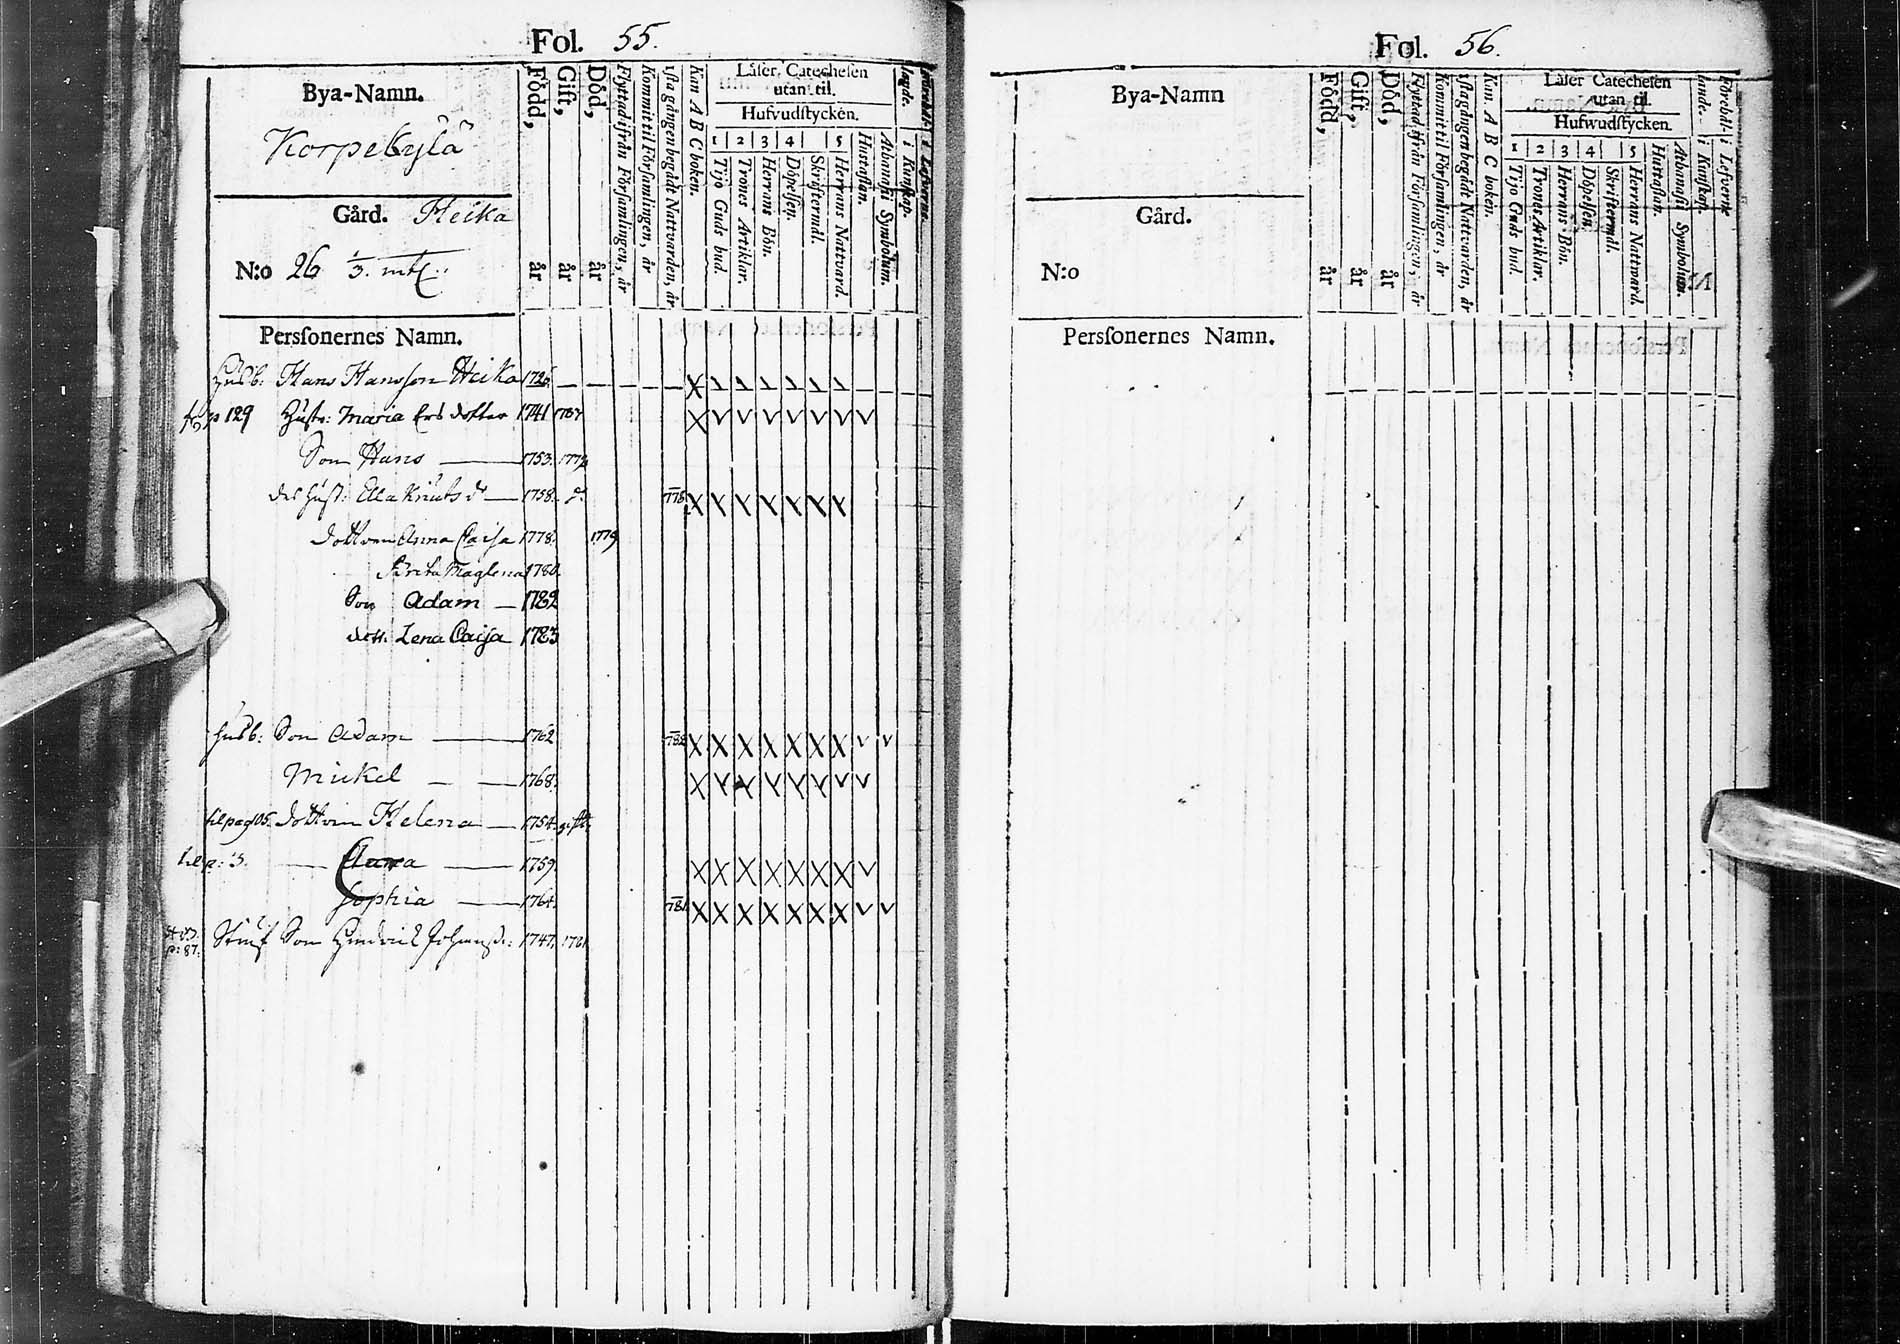 Fol. 55.
Bya-Namn.
Korpebylä
Gård. Heika
N:o 26 1/3. mtl.
Född, år
Gift, år
Död, år
Flyttad ifrån Församlingen, år
Kommit til Församlingen, år
1sta gången begådt Nattvarden, år
Kan A B C boken.
Läser Catechesen
utan til.
Hufvudstycken.
1 2 3 4 5
Tijo Guds bud.
Trones Artiklar.
Herrans Bön.
Döpelsen.
Skriftermål.
Herrans Nattvard.
Hustaflan.
Athanasii Symbolum.
i Kunskap.
i Lefverne
Perssonernes Namn.
Husb: Hans Hansson Heika 1726.
p 129 Hustr: Maria Ersdotter 1741
Son Hans 1753.
des hust: Ella Knuts dr 1758. dº 1778
Dottren Anna Caisa 1778. 1779
Brita Maglena 1780.
Son Adam 1782
dott. Lena Caisa 1783
Husb: Son Adam 1762 1782
Mickel 1768.
til pag 105. Dottren Helena 1754. gift
Anna 1759.
Sophia 1764. 1781
p: 87. Stiuf Son Hindric Johansson: 1747.
Fol. 56.
Bya-Namn
Gård.
N:o
Född, år
Gift, år
Död, år
Flyttad ifrån Församlingen, år
Kommit til Församlingen, år
1sta gången begådt Nattvarden, år
Kan A B C boken.
Läser Catechesen
utan til.
Hufwudstycken.
1 2 3 4 5
Tijo Guds bud.
Trones Artiklar.
Herrans Bön.
Döpelsen.
Skriftermål.
Herrans Nattward.
Hustaflan.
Athanasii Symbolum.
i Kunskap.
i Lefverne
Perssonernes Namn.